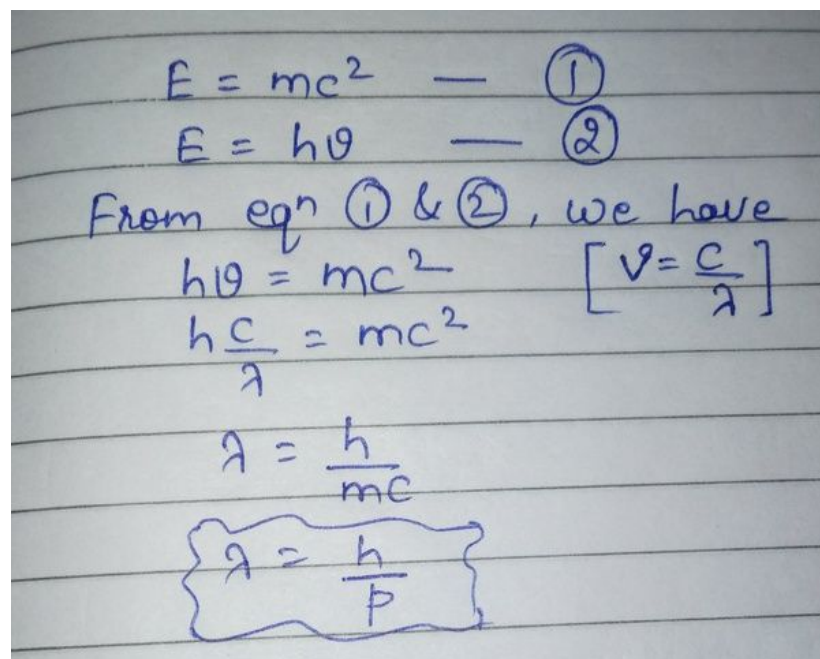 E = mc² — ①
E = hν — ②
From eqn ① & ②, we have
hν = mc² [ν = c/λ]
h c/λ = mc²
λ = h/mc
λ = h/p